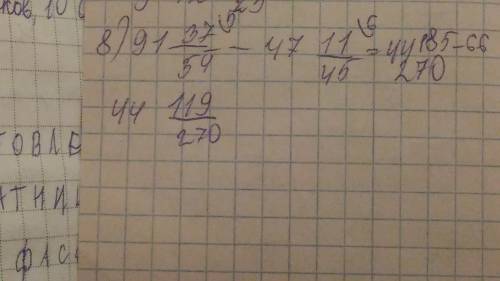 ков, 10
8) 91 37/54 ⁵ - 47 11/45 ⁶ = 44 185-66/270
44 119/270
ТОВЛЕ
АТНИ
ФАС